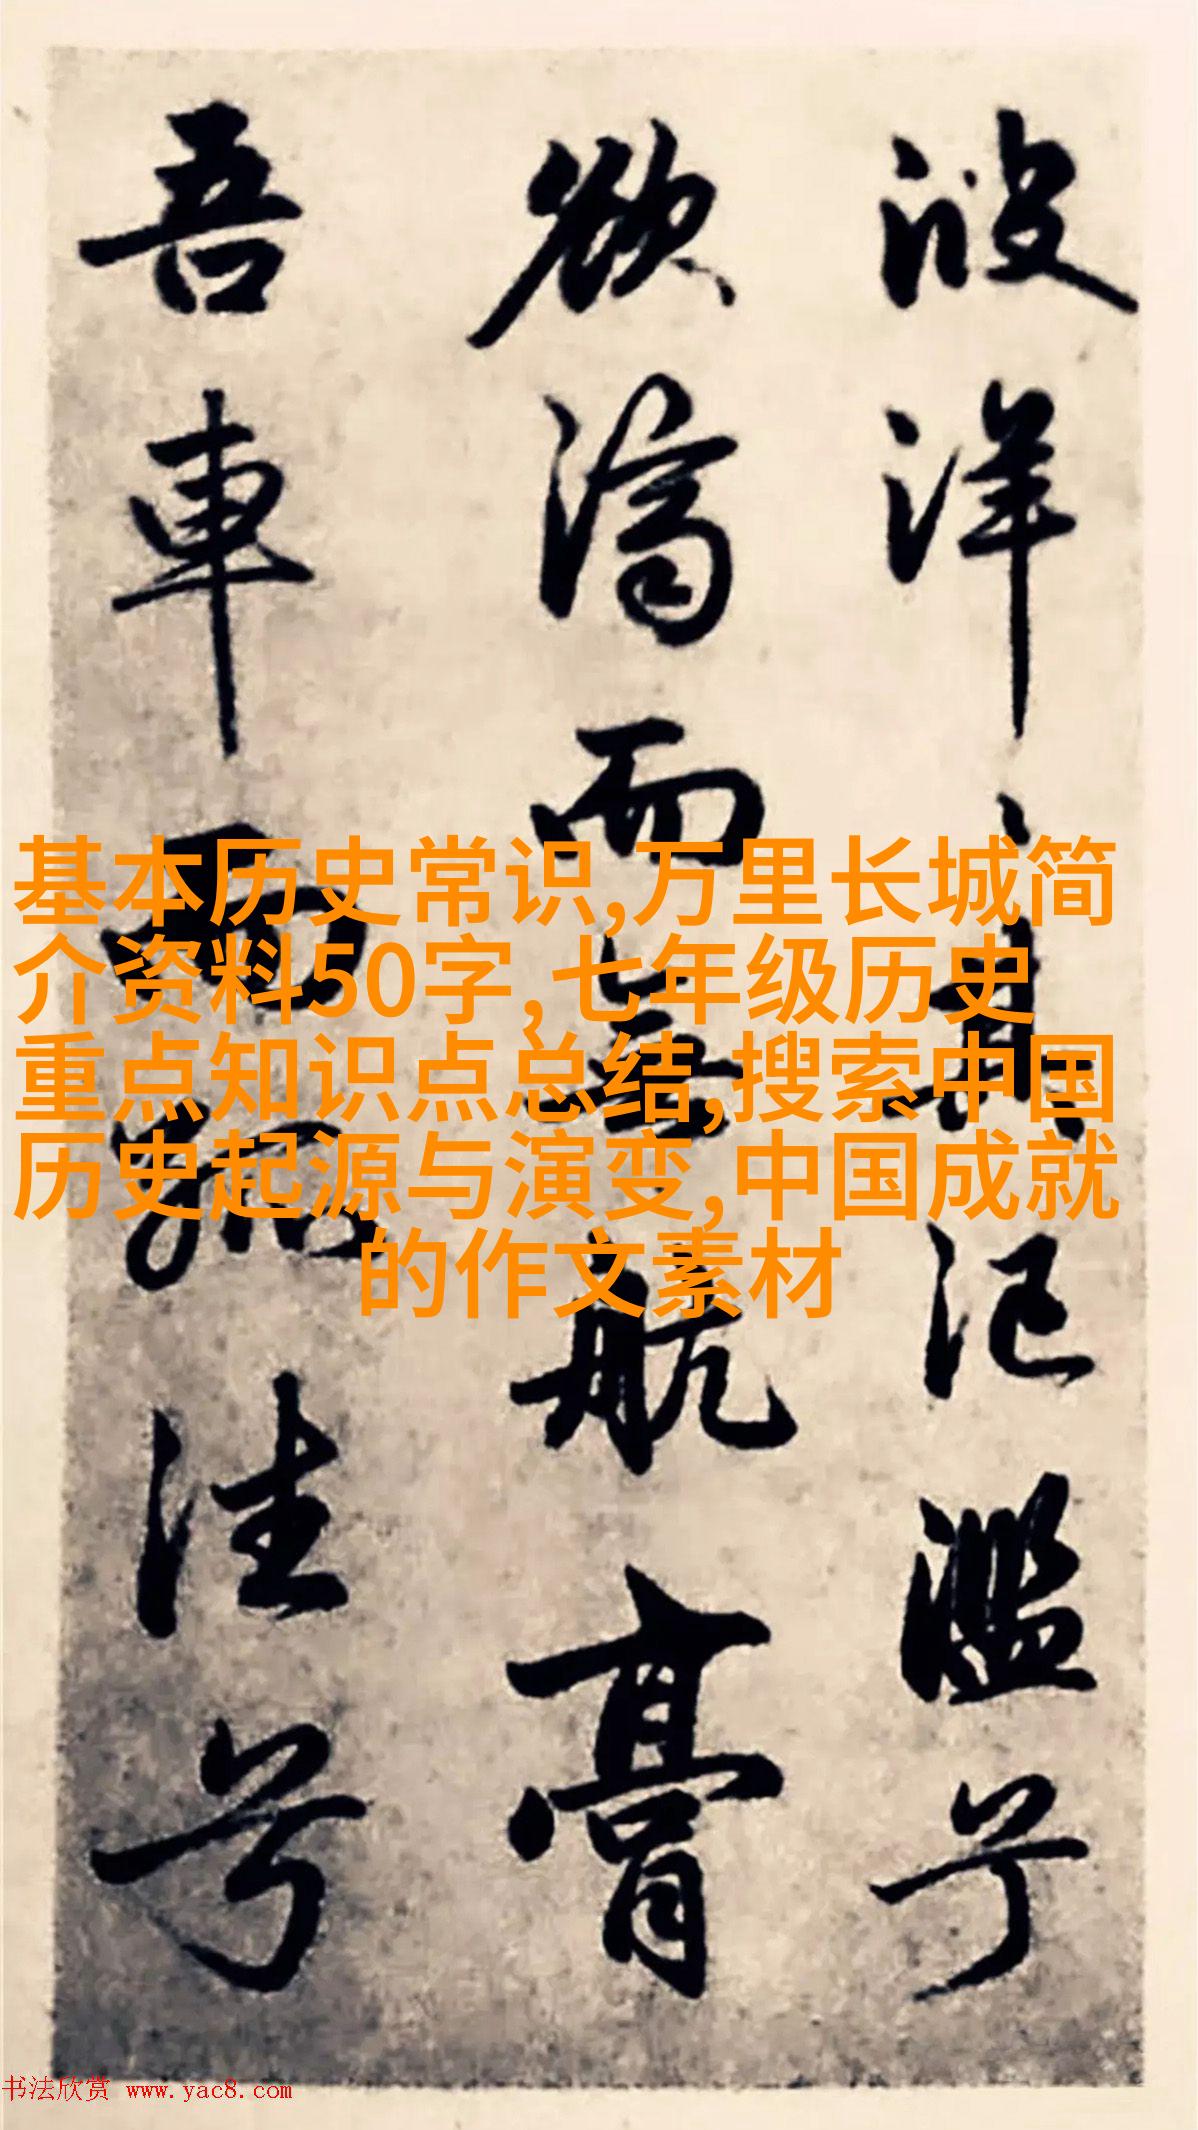 波洋其氾濫兮
欲濟而無航膏
吾車而孤往兮
基本历史常识,万里长城简
介资料50字,七年级历史
重点知识点总结,搜索中国
历史起源与演变,中国成就
的作文素材
书法欣赏 www.yac8.com